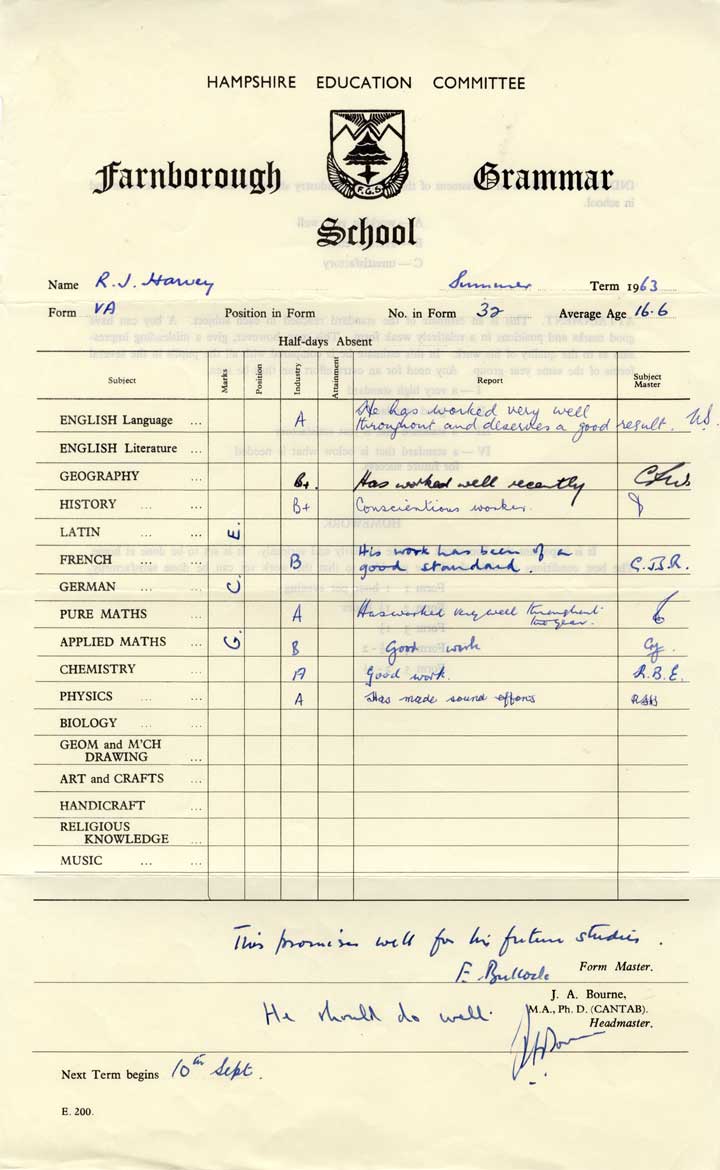 HAMPSHIRE EDUCATION COMMITTEE
Farnborough Grammar
F.G.S.
School
Name R. J. Harvey Summer Term 1963
Form VA Position in Form No. in Form 32 Average Age 16.6
Half-days Absent
Subject Marks Position Industry Attainment Report Subject Master
ENGLISH Language ... A He has worked very well
throughout and deserves a good result.
ENGLISH Literature ...
GEOGRAPHY ... B+. Has worked well recently
HISTORY ... ... B+ Conscientious worker.
LATIN ... ... E.
FRENCH ... ... B His work has been of a
good standard. C.B.R.
GERMAN ... ... C.
PURE MATHS ... A Has worked very well throughout
the year.
APPLIED MATHS ... G. B Good work Cy.
CHEMISTRY ... A Good work. R.B.E.
PHYSICS ... ... A Has made sound efforts
BIOLOGY ... ...
GEOM and M'CH
DRAWING ...
ART and CRAFTS ...
HANDICRAFT ...
RELIGIOUS
KNOWLEDGE ...
MUSIC ... ...
This promises well for his future studies.
F. Bullock Form Master.
J. A. Bourne,
He should do well. M.A., Ph. D. (CANTAB).
Headmaster.
Next Term begins 10th Sept.
E. 200.